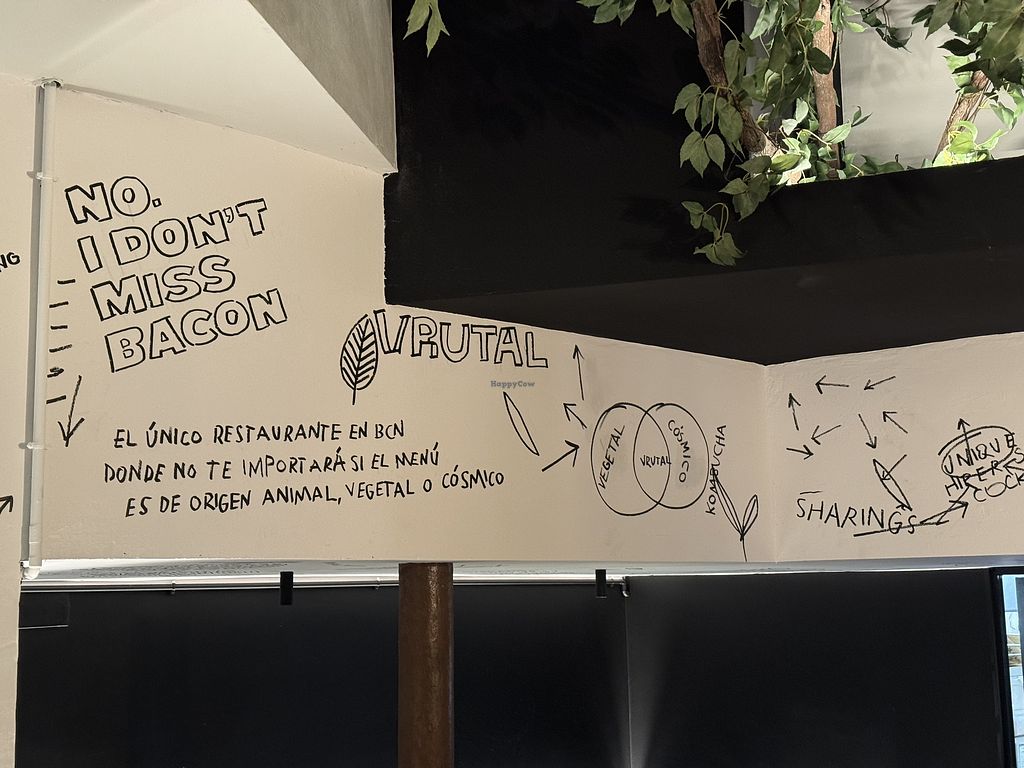 NG
NO.
I DON'T
MISS
BACON
VRUTAL
HappyCow
EL ÚNICO RESTAURANTE EN BCN
DONDE NO TE IMPORTARÁ SI EL MENÚ
ES DE ORIGEN ANIMAL, VEGETAL O CÓSMICO
VEGETAL
VRUTAL
CÓSMICO
KOMBUCHA
SHARINGS
UNIQUE